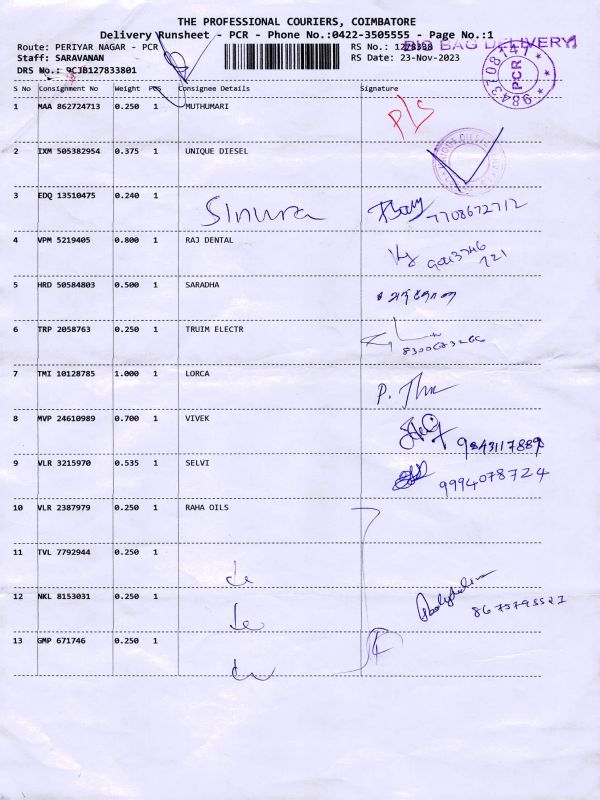 THE PROFESSIONAL COURIERS, COIMBATORE
Delivery Runsheet - PCR - Phone No.:0422-3505555 - Page No.:1
Route: PERIYAR NAGAR - PCR
RS No.: 1278338
BIG BAG DELIVERY
Staff: SARAVANAN
RS Date: 23-Nov-2023
DRS No.: 9CJB127833801
PCR
S No Consignment No Weight PCS Consignee Details Signature
1 MAA 862724713 0.250 1 MUTHUMARI
P/S
2 IXM 505382954 0.375 1 UNIQUE DIESEL
3 EDQ 13510475 0.240 1
Sinura
7708672712
4 VPM 5219405 0.800 1 RAJ DENTAL
5 HRD 50584803 0.500 1 SARADHA
6 TRP 2058763 0.250 1 TRUIM ELECTR
7 TMI 10128785 1.000 1 LORCA
8 MVP 24610989 0.700 1 VIVEK
9843117889
9 VLR 3215970 0.535 1 SELVI
9994078724
10 VLR 2387979 0.250 1 RAHA OILS
11 TVL 7792944 0.250 1
12 NKL 8153031 0.250 1
13 GMP 671746 0.250 1